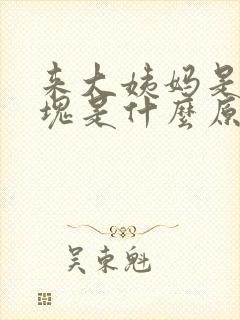 来大姨妈是
塊是什麼原
吴東魁